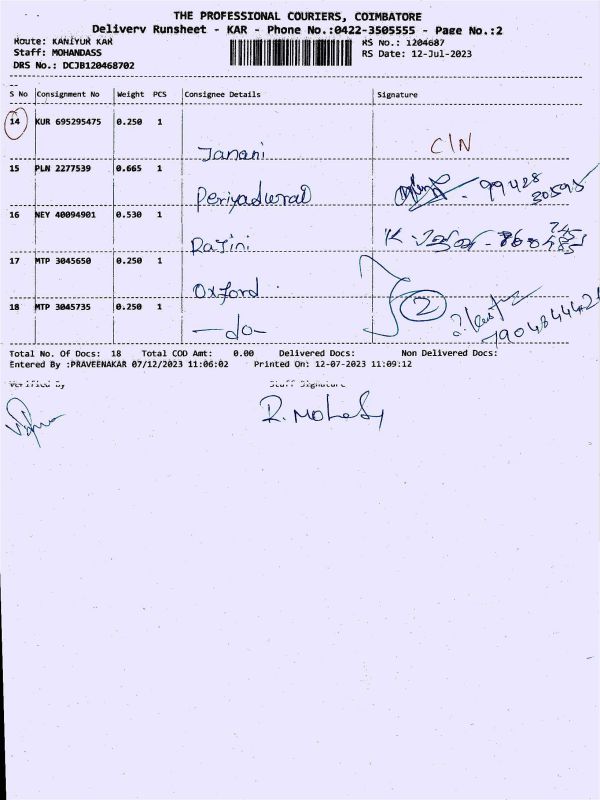 THE PROFESSIONAL COURIERS, COIMBATORE
Delivery Runsheet - KAR - Phone No.:0422-3505555 - Page No.:2
Route: KANIYUR KAR
RS No.: 1204687
Staff: MOHANDASS
RS Date: 12-Jul-2023
DRS No.: DCJB120468702
S No Consignment No Weight PCS Consignee Details Signature
14 KUR 695295475 0.250 1
Janani CIN
15 PLN 2277539 0.665 1
Periyadurai 99428 30595
16 NEY 40094901 0.530 1
Rajini K.
17 MTP 3045650 0.250 1
Oxford
18 MTP 3045735 0.250 1
—do— 2
Total No. Of Docs: 18 Total COD Amt: 0.00 Delivered Docs: Non Delivered Docs:
Entered By :PRAVEENAKAR 07/12/2023 11:06:02 Printed On: 12-07-2023 11:09:12
Verified By Staff Signature
R. Mohd